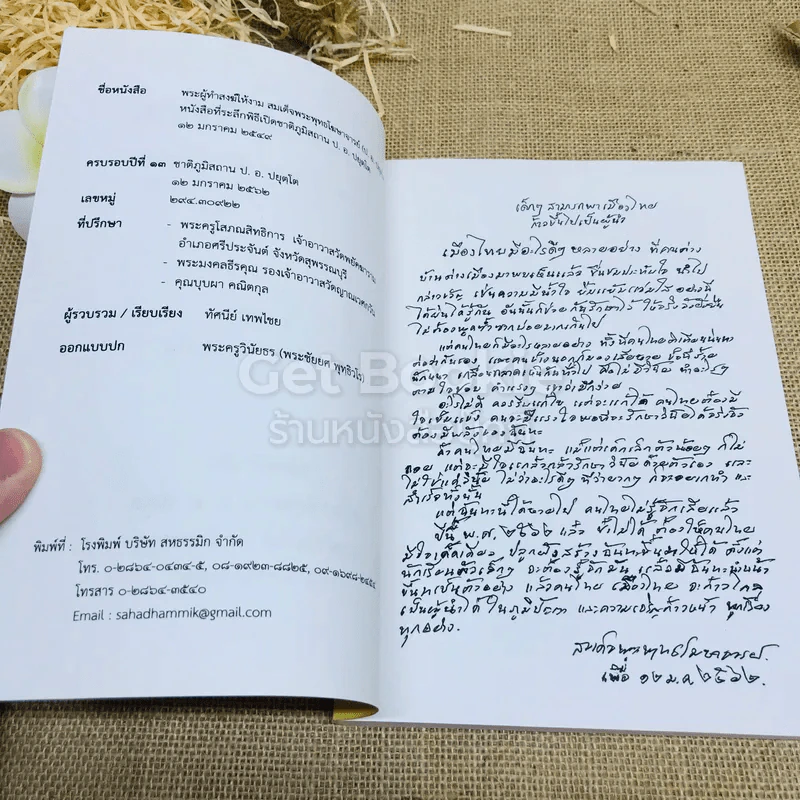 ชื่อหนังสือ พระผู้ทำสงฆ์ให้งาม สมเด็จพระพุทธโฆษาจารย์ (ป. อ. ปยุตฺโต)
หนังสือที่ระลึกพิธีเปิดชาติภูมิสถาน ป. อ. ปยุตฺโต
๑๒ มกราคม ๒๕๔๙
ครบรอบปีที่ ๑๓ ชาติภูมิสถาน ป. อ. ปยุตฺโต
๑๒ มกราคม ๒๕๖๒
เลขหมู่ ๒๙๔.๓๐๙๒๒
ที่ปรึกษา - พระครูโสภณสิทธิการ เจ้าอาวาสวัดพยัคฆาราม
อำเภอศรีประจันต์ จังหวัดสุพรรณบุรี
- พระมงคลธีรคุณ รองเจ้าอาวาสวัดญาณเวศกวัน
- คุณบุบผา คณิตกุล
ผู้รวบรวม / เรียบเรียง ทัศนีย์ เทพไชย
ออกแบบปก พระครูวินัยธร (พระชัยยศ พุทฺธิวโร)
พิมพ์ที่ : โรงพิมพ์ บริษัท สหธรรมิก จำกัด
โทร. ๐-๒๘๖๔-๐๔๓๔-๕, ๐๘-๑๙๒๓-๘๘๒๕, ๐๙-๑๖๙๘-๒๕๕๔
โทรสาร ๐-๒๘๖๔-๓๕๔๐
Email : sahadhammik@gmail.com
เด็กๆ สามารถพาเมืองไทย
ก้าวขึ้นไปเป็นผู้นำ
เมืองไทยมีอะไรดีๆ หลายอย่าง ที่คนต่าง
บ้านต่างเมืองมาพบเห็นแล้ว ชื่นชมประทับใจ นำไป
กล่าวขวัญ เช่นความมีน้ำใจ ยิ้มแย้มแจ่มใส อย่างนี้
ไม่ต้องพูด
แต่คนไทยก็มีอะไรหลายอย่าง ที่คนไทย
ตามใจชอบ
อะไรไม่ดี ควรรีบแก้ไข แต่จะแก้ได้ คนไทยต้องมี
ใจเข้มแข็ง คนจะมีแรงใจพอที่จะรักษาวินัยได้จริงจัง
ต้องมีพลังของฉันทะ
ถ้าคนไทยมีฉันทะ แม้แต่เด็กเล็กตัวน้อยๆ ก็ไม่
ถอย แต่จะมีใจแกล้วกล้ารักษาวินัยด้วยตัวเอง และ
ไม่ใช่แค่วินัย ไม่ว่าอะไรดีๆ ที่ว่ายาก ก็จะอยากทำ และ
สำเร็จทั้งนั้น
แต่ฉันทะนี้ได้หายไป คนไทยไม่รู้จักเสียแล้ว
ปีนี้ พ.ศ. ๒๕๖๒ แล้ว ช้าไม่ได้ ต้องให้คนไทย
มีใจเด็ดเดี่ยว ปลูกฝังสร้างฉันทะขึ้นมาให้ได้ ตั้งแต่
นักเรียนตัวเล็กๆ จะต้องรู้จักมัน แล้วมีฉันทะนำหน้า
ขึ้นมาเป็นตัวอย่าง แล้วคนไทย เมืองไทย จะก้าวไกล
เป็นผู้นำได้ ในภูมิปัญญา และความเจริญก้าวหน้า ทุกเรื่อง
ทุกอย่าง.
สมเด็จพระพุทธโฆษาจารย์.
เมื่อ ๑๒ ม.ค. ๒๕๖๒.
Get Books